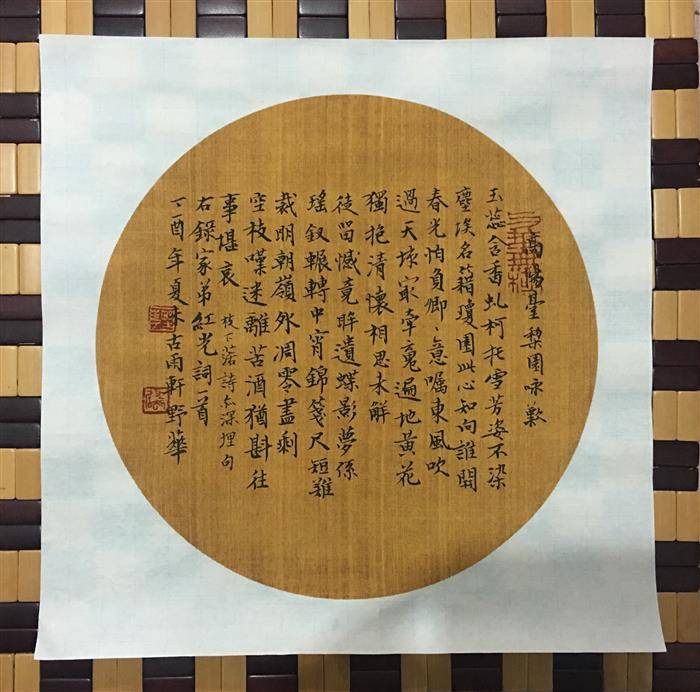 高陽臺 梨園咏歎
玉蕊含香虬柯托雪芳姿不染
塵埃名籍瓊園此心知向誰開
春光怕負卿、意囑東風吹
過天垓㝡牽遍地黃花
獨抱清懷相思未解
徒留憾竟眸遺蝶影夢係
瑤釵輾轉中宵錦箋尺短難
裁明朝嶺外凋零盡剩
空枝嘆迷離苦酒猶斟往
事堪哀 枝下落詩亦深埋句
右錄家弟紅光詞一首
丁酉年夏末古雨軒野華